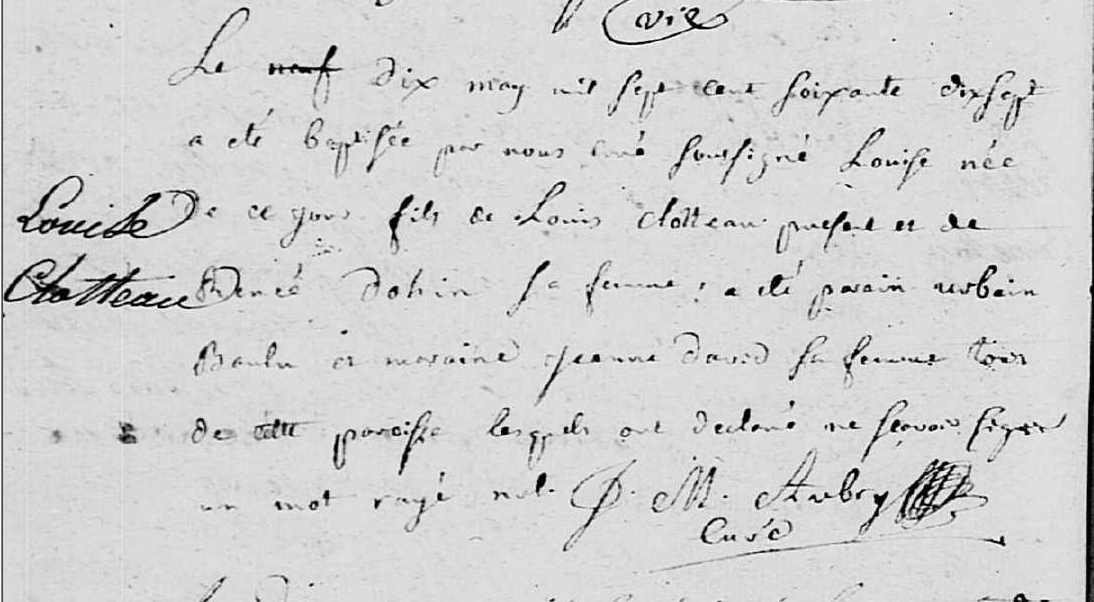 vie
Le neuf dix may mil sept cent soixante dixsept
a eté baptisée par nous curé soussigné Louise née
Louise
de ce jour fils de Louis Clotteau present et de
Clotteau
Renée Dohin sa femme, a eté parain urbain
et maraine jeanne david sa femme tous
de cette paroisse lesquels ont declaré ne sçavoir signer
un mot rayé nul. P. M. Aubry
Curé